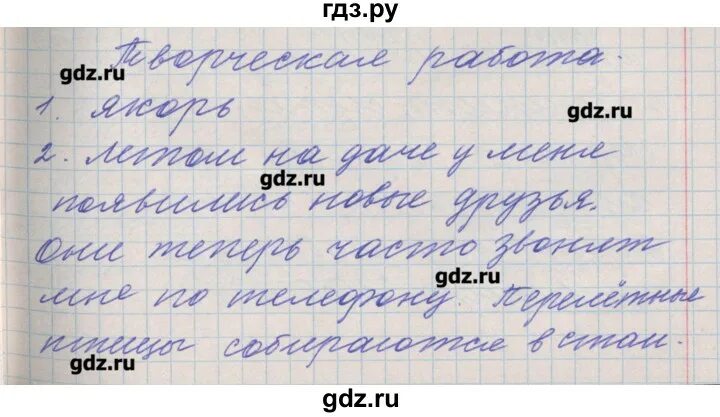 гдз.ру
Творческая работа.
gdz.ru
1. якорь
gdz.ru
2. Летом на даче у меня
gdz.ru
появились новые друзья.
Они теперь часто звонят
gdz.ru
мне по телефону. Перелётные
птицы собираются в стаи.
gdz.ru
gdz.ru